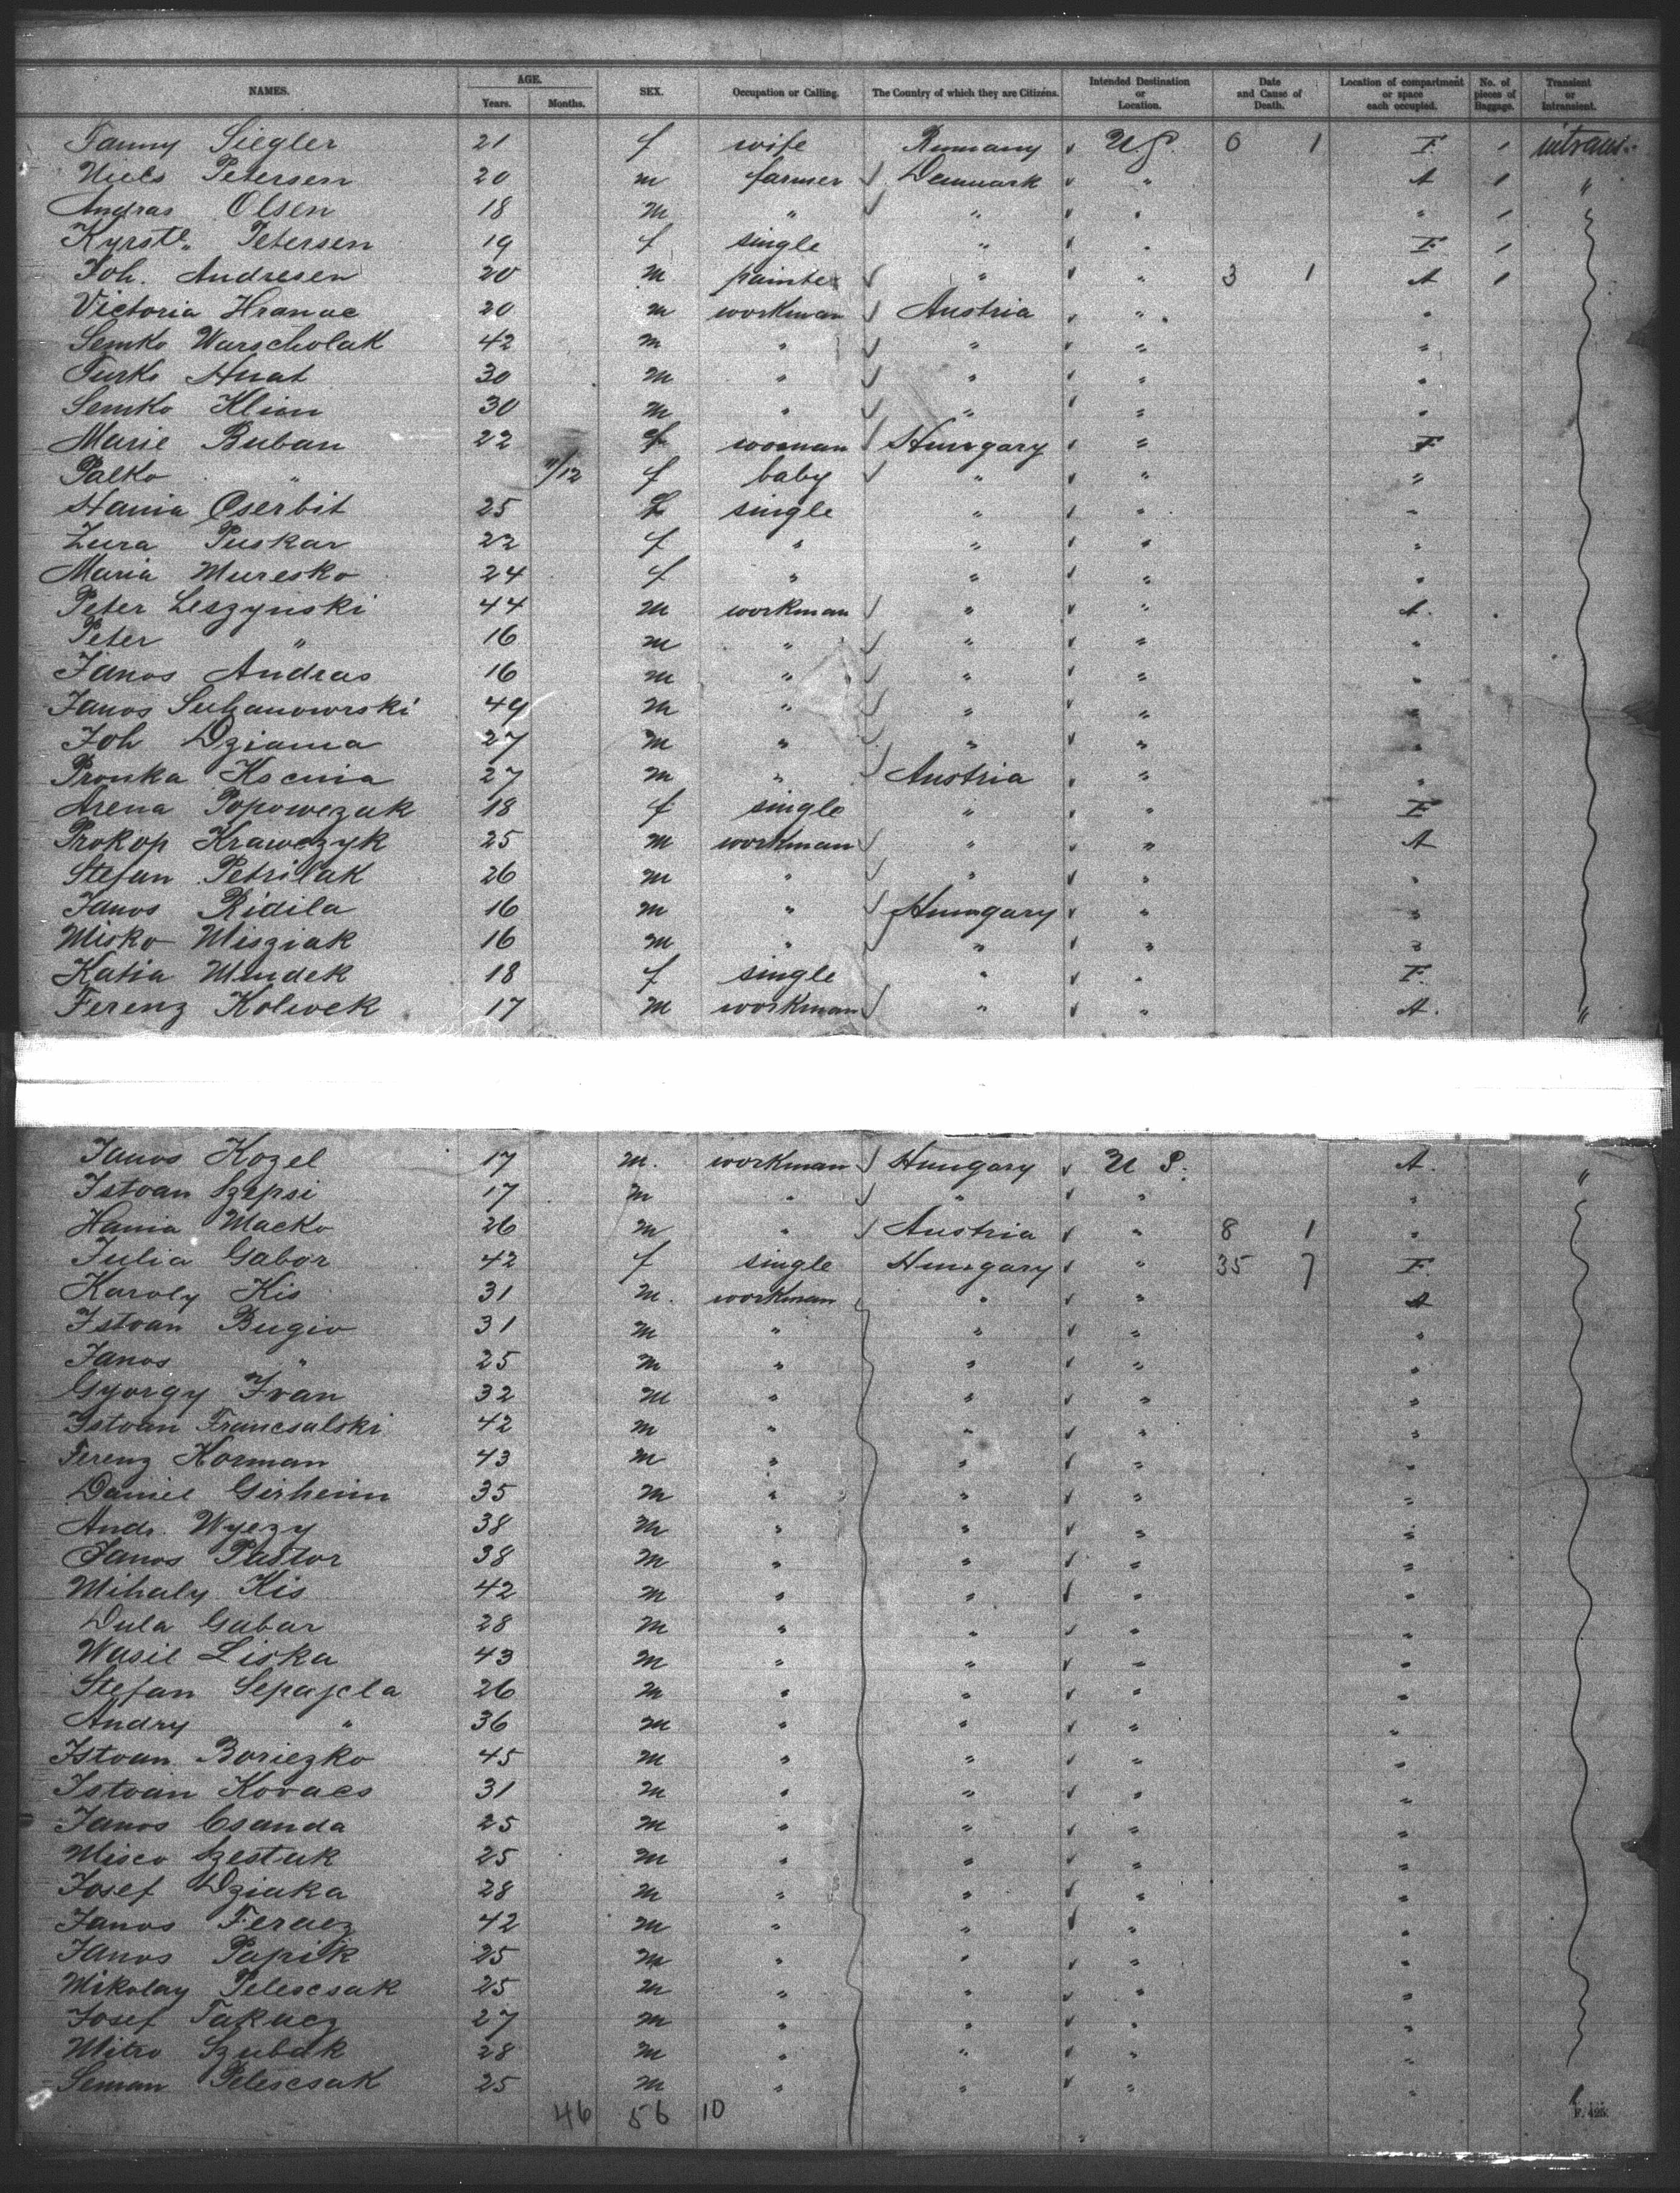 NAMES. AGE. Years. Months. SEX. Occupation or Calling. The Country of which they are Citizens. Intended Destination or Location. Date and Cause of Death. Location of compartment or space each occupied. No. of pieces of Baggage. Transient or Intransient.
Fanny Siegler 21 f wife Rumany ✓ U.S. 6 1 F. 1 intrans.
Niels Petersen 20 m farmer ✓ Denmark ✓ " A 1 "
Andras Olsen 18 m " ✓ " ✓ " " 1
Kyrste. Petersen 19 f single " ✓ " F 1
Joh. Andresen 20 m painter ✓ " ✓ " 3 1 A 1
Victoria Hranac 20 m workman ✓ Austria ✓ " "
Semko Warscholak 42 m " ✓ " ✓ " "
Turko Huat 30 m " ✓ " ✓ " "
Semko Klim 30 m " ✓ " ✓ " "
Marie Buban 22 f woman ✓ Hungary ✓ " F
Palko " /12 f baby ✓ " ✓ " "
Hania Cserbit 25 f single " ✓ " "
Zura Puskar 22 f " " ✓ " "
Maria Muresko 24 f " " ✓ " "
Peter Leszynski 44 m workman ✓ " ✓ " A.
Peter " 16 m " ✓ " ✓ " "
Janos Andras 16 m " ✓ " ✓ " "
Janos Suhanowrski 49 m " ✓ " ✓ " "
Joh Dziama 27 m " ✓ " ✓ " "
Pronka Kscnia 27 m " ✓ Austria ✓ " "
Arena Popowczak 18 f single " ✓ " F
Prokop Krawczyk 25 m workman ✓ " ✓ " A
Stefan Petrilak 26 m " ✓ " ✓ " "
Janos Ridila 16 m " ✓ Hungary ✓ " "
Misko Misziak 16 m " ✓ " ✓ " "
Katia Mindek 18 f single " ✓ " F.
Ferenz Kolwek 17 m workman ✓ " ✓ " A. "
Janos Kozel 17 m. workman ✓ Hungary ✓ U S. A. "
Istvan Szepsi 17 m " ✓ " ✓ " "
Hania Macko 26 m " ✓ Austria ✓ " 8 1 "
Julia Gabor 42 f single Hungary ✓ " 35 7 F.
Karoly Kis 31 m. workman " ✓ " A
Istvan Bugiv 31 m " " ✓ " "
Janos " 25 m " " ✓ " "
Gyorgy Ivan 32 m " " ✓ " "
Istvan Francsalski 42 m " " ✓ " "
Ferenz Korman 43 m " " ✓ " "
Daniel Girheim 35 m " " ✓ " "
Andr. Wyezy 38 m " " ✓ " "
Janos Pastor 38 m " " ✓ " "
Mihaly Kis 42 m " " ✓ " "
Dula Gabar 28 m " " ✓ " "
Wasil Liska 43 m " " ✓ " "
Stefan 26 m " " ✓ " "
Andry " 36 m " " ✓ " "
Istvan Boriczko 45 m " " ✓ " "
Istvan Kovacs 31 m " " ✓ " "
Janos Csanda 25 m " " ✓ " "
Misco Szestak 25 m " " ✓ " "
Josef Dziaka 28 m " " ✓ " "
Janos Feracz 42 m " " ✓ " "
Janos Papik 25 m " " ✓ " "
Mikolay Pelescsak 25 m " " ✓ " "
Josef Takacz 27 m " " ✓ " "
Mitro Szubak 28 m " " ✓ " "
Seman Pelescsak 25 m " " ✓ " "
46 56 10